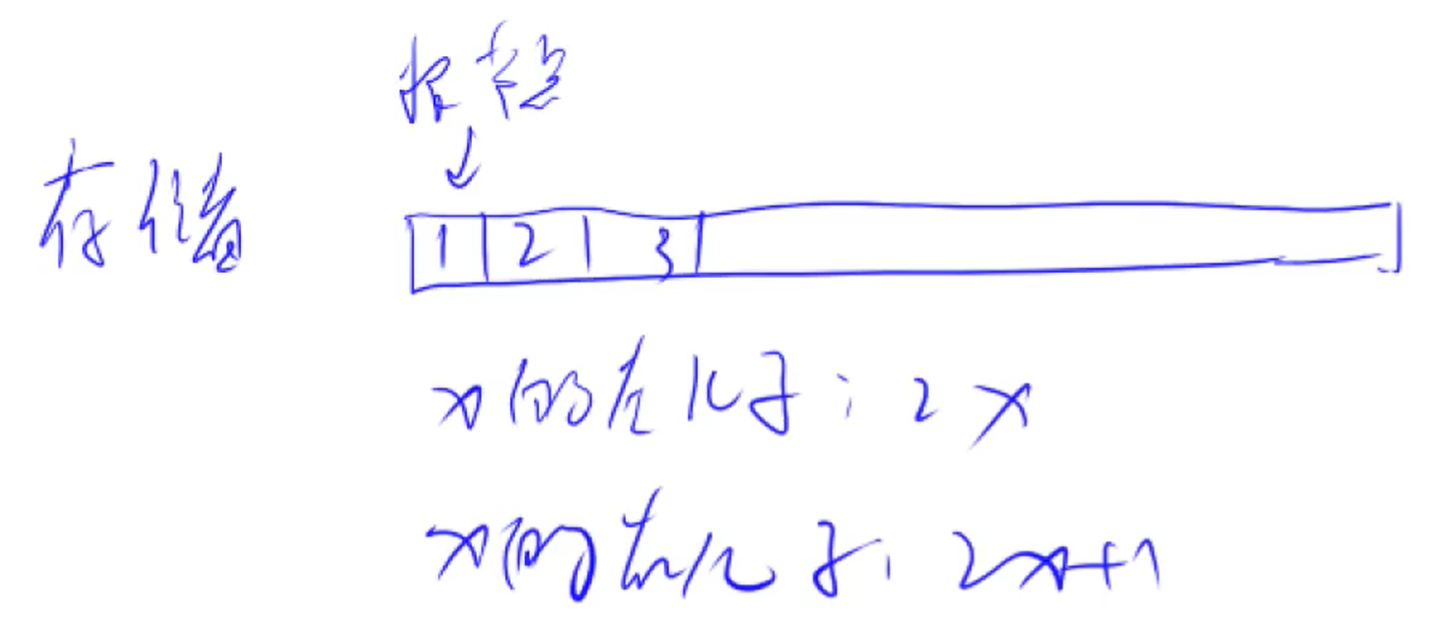 根节点
存储
1 2 3
x的左儿子：2x
x的右儿子：2x+1